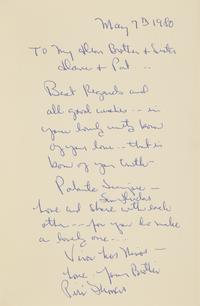 May 7th 1980
To My Dear Brother & Sister
& Pat...
Best Regards and
all good wishes -- in
your lovely unity born
of your love -- that is
born of your truth --
Love and share with each
other --- for you do make
a lovely one...
Love Your Brother
Piri Thomas